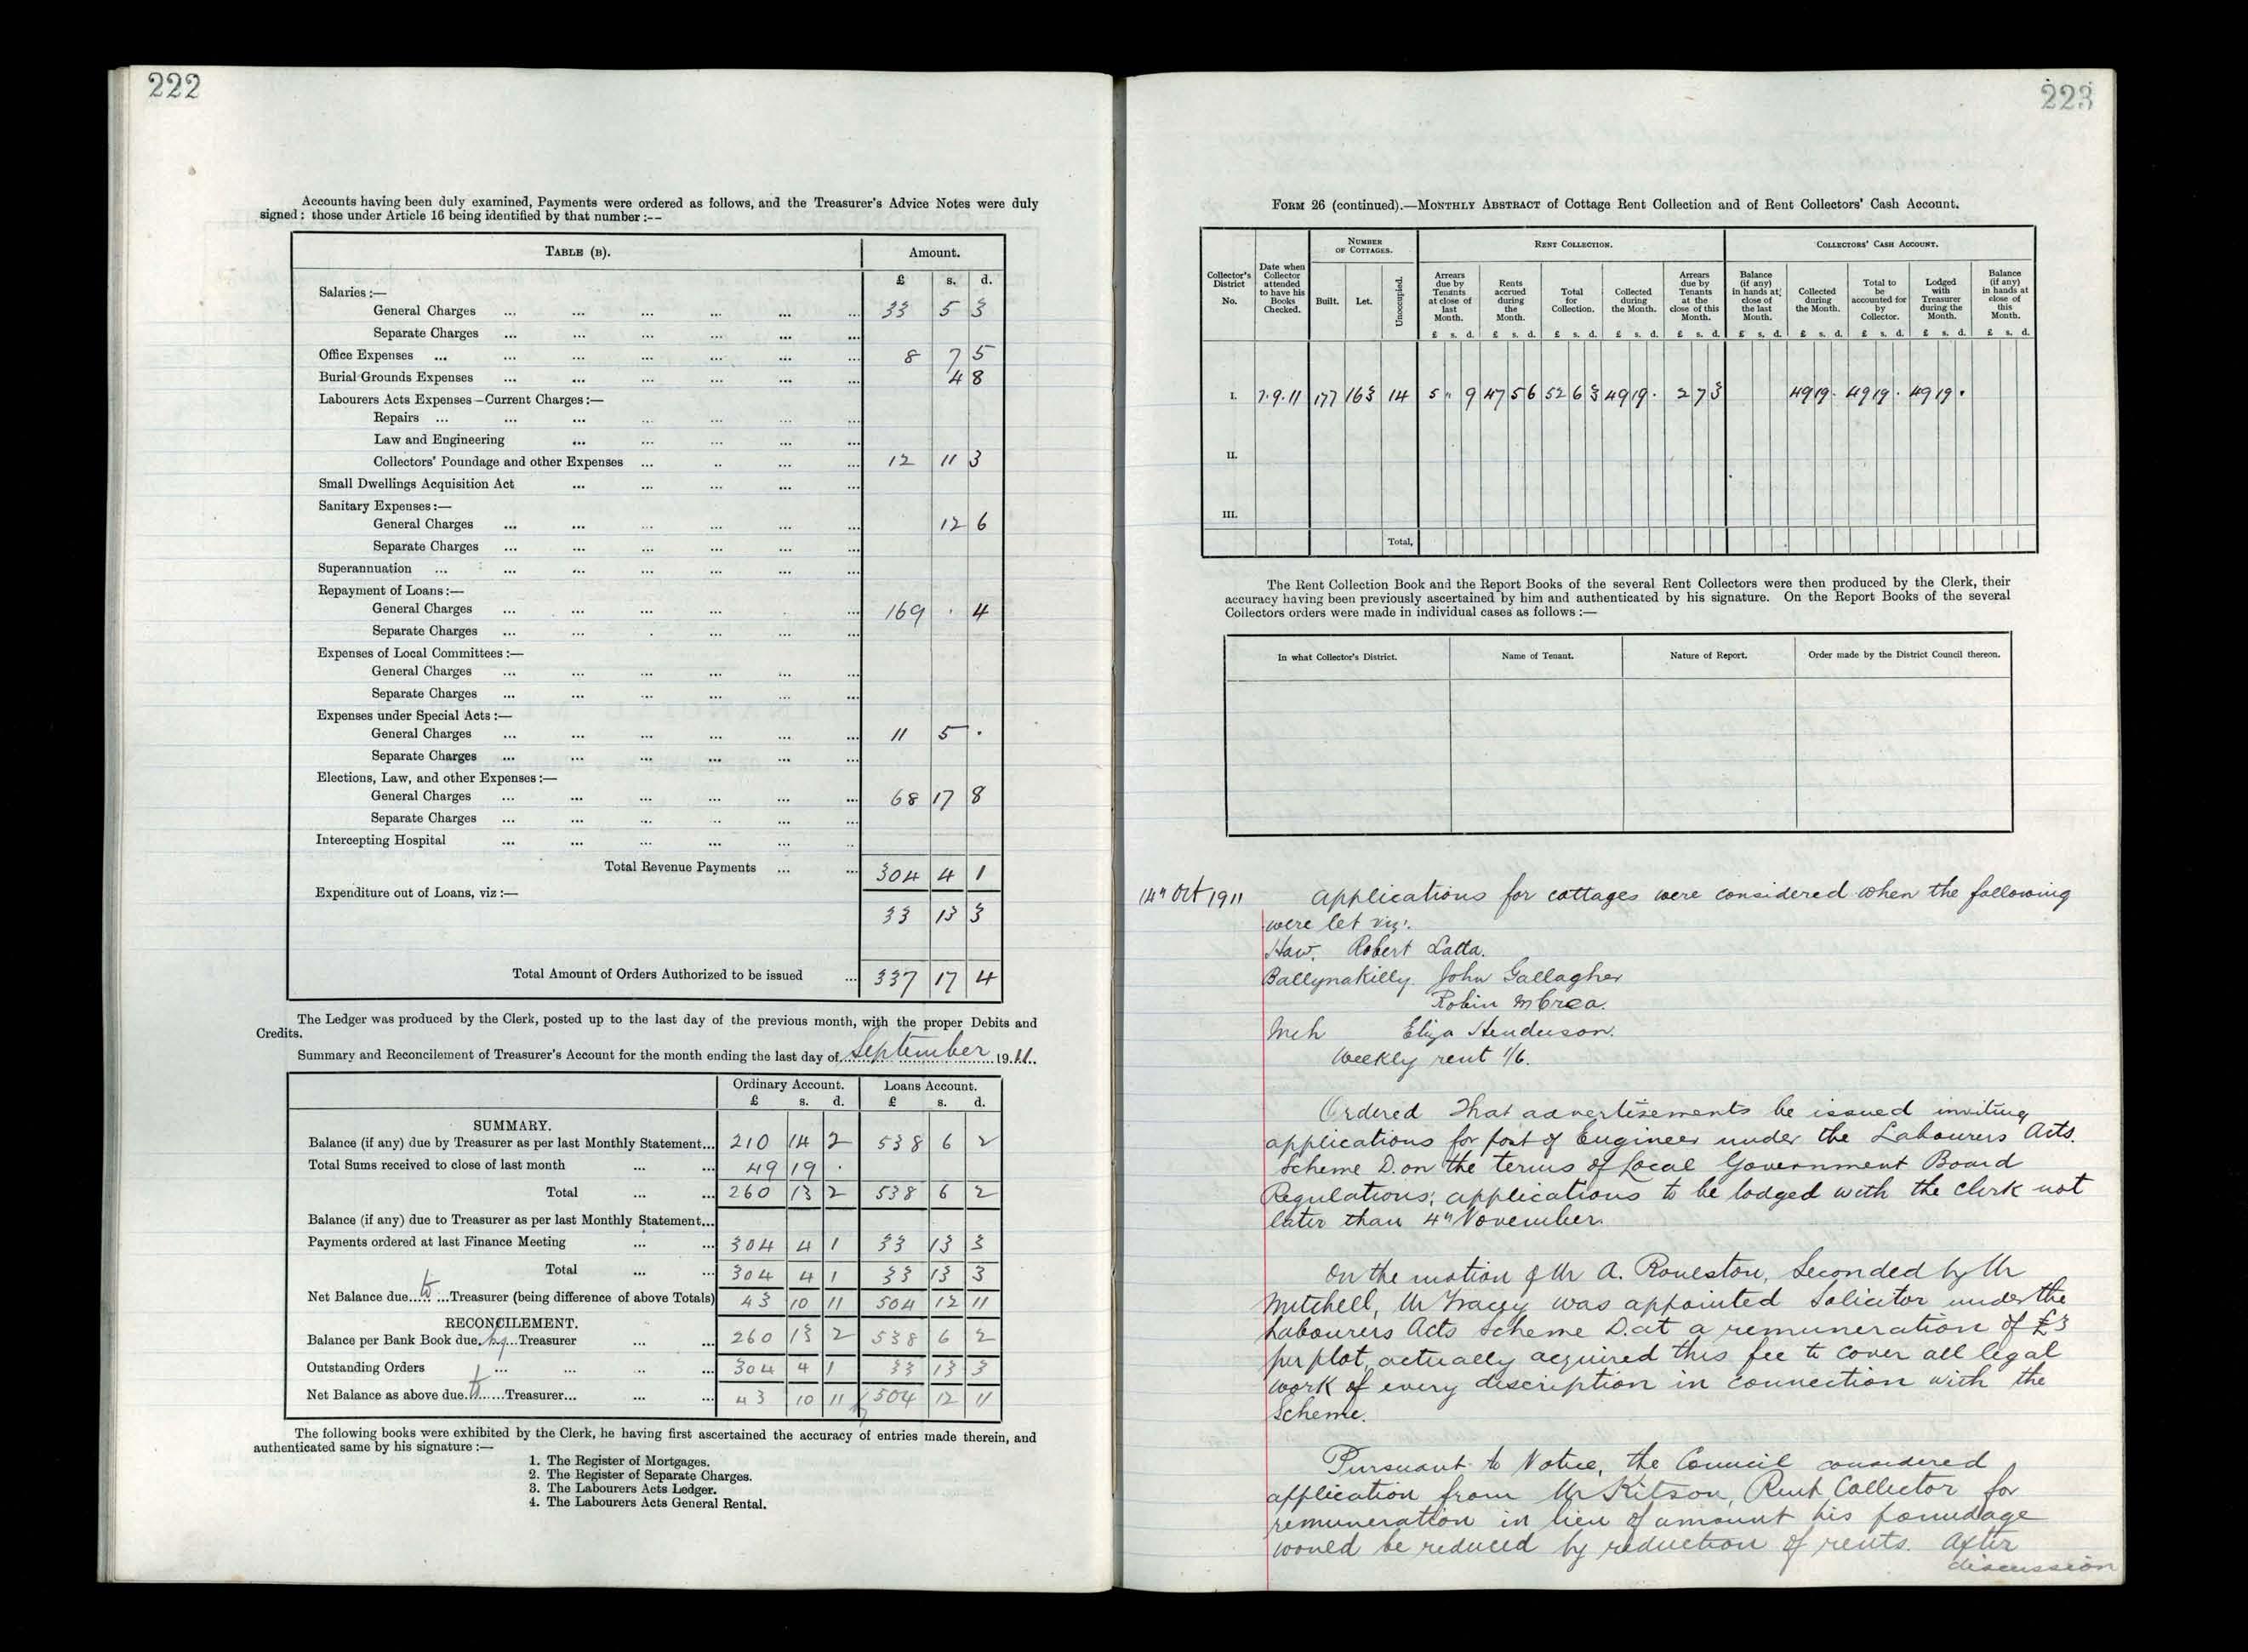 222
Accounts having been duly examined, Payments were ordered as follows, and the Treasurer's Advice Notes were duly
signed: those under Article 16 being identified by that number:--
TABLE (B). Amount.
£ s. d.
Salaries:—
General Charges ... ... ... ... ... ... 33 5 3
Separate Charges ... ... ... ... ... ...
Office Expenses ... ... ... ... ... ... 8 7 5
Burial Grounds Expenses ... ... ... ... ... ... 4 8
Labourers Acts Expenses—Current Charges:—
Repairs ... ... ... ... ... ... ...
Law and Engineering ... ... ... ... ...
Collectors' Poundage and other Expenses ... .. ... ... 12 11 3
Small Dwellings Acquisition Act ... ... ... ... ...
Sanitary Expenses:—
General Charges ... ... ... ... ... ... 12 6
Separate Charges ... ... ... ... ... ...
Superannuation ... ... ... ... ... ... ...
Repayment of Loans:—
General Charges ... ... ... ... ... 169 . 4
Separate Charges ... ... . ... ... ...
Expenses of Local Committees:—
General Charges ... ... ... ... ... ...
Separate Charges ... ... ... ... ... ...
Expenses under Special Acts:—
General Charges ... ... ... ... ... ... 11 5 .
Separate Charges ... ... ... ... ... ...
Elections, Law, and other Expenses:—
General Charges ... ... ... ... ... ... 68 17 8
Separate Charges ... ... ... ... ... ...
Intercepting Hospital ... ... ... ... ... ..
Total Revenue Payments ... ... 304 4 1
Expenditure out of Loans, viz:—
33 13 3
Total Amount of Orders Authorized to be issued ... 337 17 4
The Ledger was produced by the Clerk, posted up to the last day of the previous month, with the proper Debits and
Credits.
Summary and Reconcilement of Treasurer's Account for the month ending the last day of September 1911.
Ordinary Account. Loans Account.
£ s. d. £ s. d.
SUMMARY.
Balance (if any) due by Treasurer as per last Monthly Statement... 210 14 2 538 6 2
Total Sums received to close of last month ... ... 49 19 .
Total ... ... 260 13 2 538 6 2
Balance (if any) due to Treasurer as per last Monthly Statement...
Payments ordered at last Finance Meeting ... ... 304 4 1 33 13 3
Total ... ... 304 4 1 33 13 3
Net Balance due to Treasurer (being difference of above Totals) 43 10 11 504 12 11
RECONCILEMENT.
Balance per Bank Book due by Treasurer ... ... 260 13 2 538 6 2
Outstanding Orders ... ... ... ... 304 4 1 33 13 3
Net Balance as above due to Treasurer... ... ... 43 10 11 504 12 11
The following books were exhibited by the Clerk, he having first ascertained the accuracy of entries made therein, and
authenticated same by his signature:—
1. The Register of Mortgages.
2. The Register of Separate Charges.
3. The Labourers Acts Ledger.
4. The Labourers Acts General Rental.
223
FORM 26 (continued).—MONTHLY ABSTRACT of Cottage Rent Collection and of Rent Collectors' Cash Account.
Collector's District No. Date when Collector attended to have his Books Checked. NUMBER OF COTTAGES. RENT COLLECTION. COLLECTORS' CASH ACCOUNT.
Built. Let. Unoccupied. Arrears due by Tenants at close of last Month. Rents accrued during the Month. Total for Collection. Collected during the Month. Arrears due by Tenants at the close of this Month. Balance (if any) in hands at close of the last Month. Collected during the Month. Total to be accounted for by Collector. Lodged with Treasurer during the Month. Balance (if any) in hands at close of this Month.
£ s. d. £ s. d. £ s. d. £ s. d. £ s. d. £ s. d. £ s. d. £ s. d. £ s. d. £ s. d.
I. 7.9.11 177 163 14 5 " 9 47 5 6 52 6 3 49 19 . 2 7 3 49 19 . 49 19 . 49 19 .
II.
III.
Total,
The Rent Collection Book and the Report Books of the several Rent Collectors were then produced by the Clerk, their
accuracy having been previously ascertained by him and authenticated by his signature. On the Report Books of the several
Collectors orders were made in individual cases as follows:—
In what Collector's District. Name of Tenant. Nature of Report. Order made by the District Council thereon.
14th Oct 1911 Applications for cottages were considered when the following
were let viz:.
Haw. Robert Latta.
Ballynakilly. John Gallagher
Robin McCrea.
Eliza Henderson.
Weekly rent 1/6.
Ordered That advertisements be issued inviting
applications for post of Engineer under the Labourers Acts.
Scheme D. on the terms of Local Government Board
Regulations; applications to be lodged with the clerk not
later than 4th November.
On the motion of Mr A. Rouleston, Seconded by Mr
Mitchell, Mr Tracey was appointed Solicitor under the
Labourers Acts Scheme D. at a remuneration of £3
per plot, actually acquired this fee to cover all legal
work of every discription in connection with the
Scheme.
Pursuant to Notice, the Council considered
application from Mr Kitson, Rent Collector for
remuneration in lieu of amount his poundage
would be reduced by reduction of rents. After
discussion